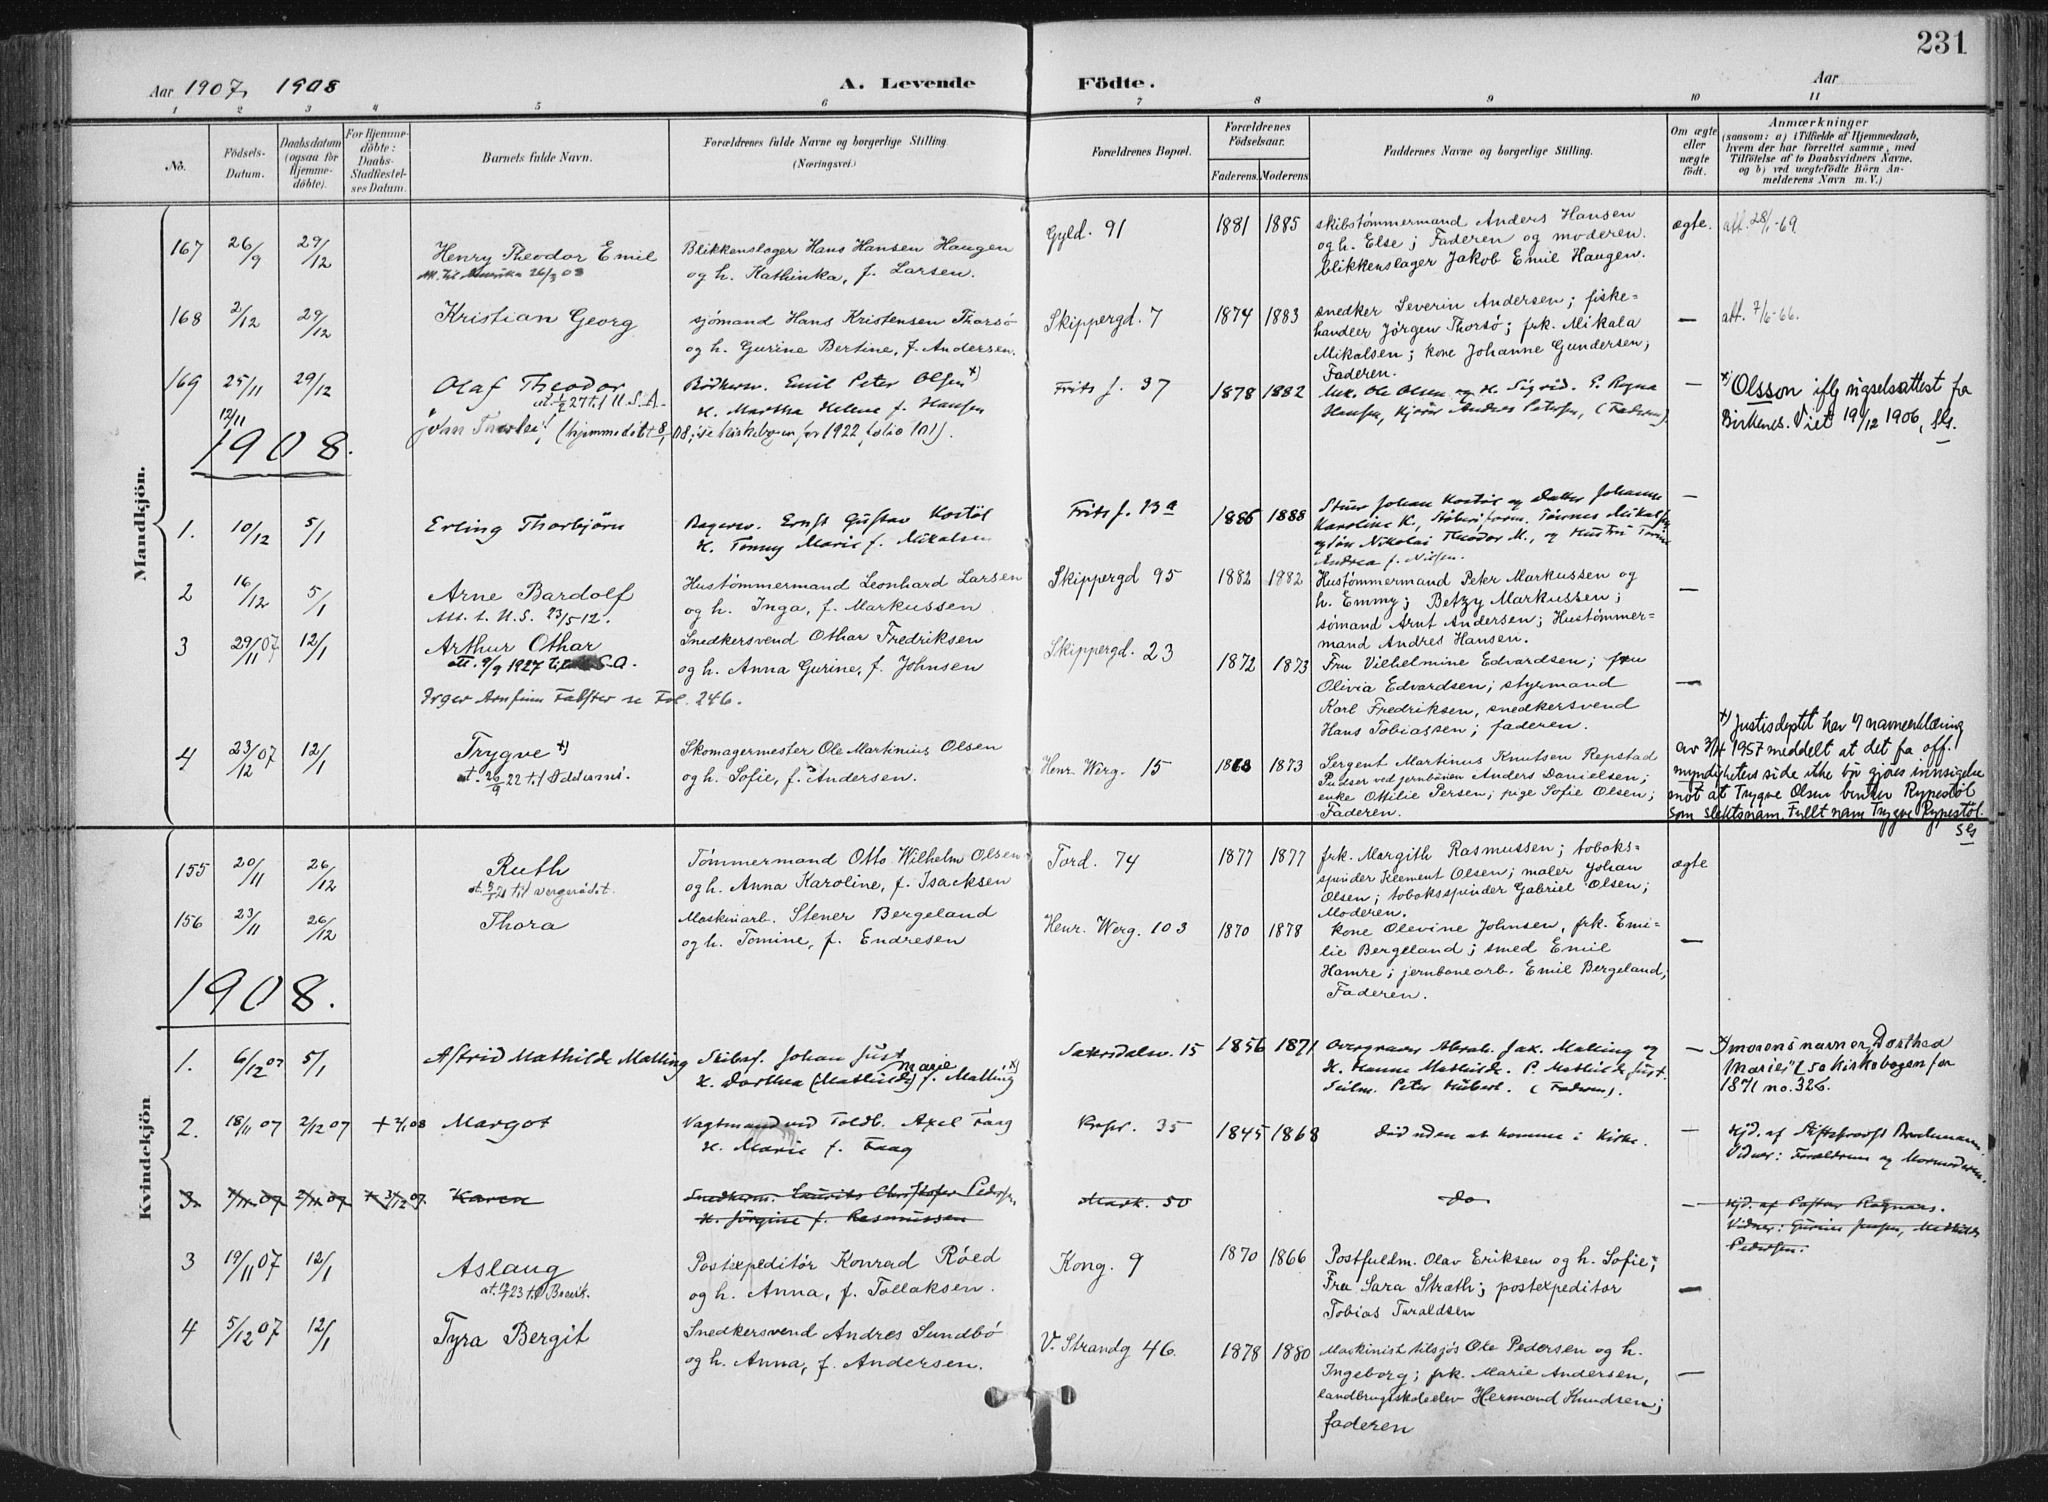 231
Aar 1907, 1908
A. Levende
Födte.
Aar
1 2 3 4 5 6 7 8 9 10 11
No.
Födsels-
Datum.
Daabsdatum
(ogsaa for
Hjemme-
döbte).
For Hjemme-
döbte:
Daabs-
Stadfæstel-
ses Datum.
Barnets fulde Navn.
Forældrenes fulde Navne og borgerlige Stilling
(Næringsvei.)
Forældrenes Bopæl.
Forældrenes
Födselsaar.
Faderens. Moderens.
Faddernes Navne og borgerlige Stilling.
Om ægte
eller
uægte
födt.
Anmærkninger
(saasom: a) i Tilfælde af Hjemmedaab,
hvem der har forrettet samme, med
Tilföielse af to Daabsvidners Navne,
og b) ved uægtefödte Börn An-
melderens Navn m. V.)
Mandkjön.
167 26/9 29/12
Henry Theodor Emil
Att. til Amerika 26/3 08
Blikkenslager Hans Hansen Haugen
og h. Kathinka, f. Larsen.
Gyld. 91
1881 1885
skibstømmermand Anders Hansen
og h. Else; Faderen og moderen.
blikkenslager Jakob Emil Haugen.
ægte.
att. 28/1-69
168 2/12 29/12
Kristian Georg
sjömand Hans Kristensen Thorsö
og h. Gurine Bertine, f. Andersen.
Skippergd. 7
1874 1883
snedker Severin Andersen; fiske-
handler Jörgen Thorsö; frk. Mikala
Mikalsen; kone Johanne Gundersen;
Faderen.
—
att. 7/6-66.
169 25/11 29/12
Olaf Theodor
Bödkersv. Emil Peter Olsen x)
H. Martha Helene f. Hansen
Frits J. 37
1878 1882
Mek. Ole Olsen og H. Sigrid. P. Ragna
Hansen, Kjöre Anders Petersen, (Faderen).
—
x) Olsson iflg vigselsattest fra
Birkenes. Viet 19/12 1906, Sls.
12/11
John Thorleif, (hjemmedöbt 8/ 08; se kirkebogen for 1922, folio 101).
1908.
1. 10/12 5/1
Erling Thorbjörn
Bagersv. Ernst Gustav Kostöl
H. Tonny Marie f. Mikalsen
Frits J. 13a
1886 1888
Stuer Johan Kostöl og Datter Johanne
Karoline K., Töbersform. Törnes Mikalsen
og sön Nikolai Theodor M., og Hustru
Andrea f. Nilsen.
—
2 16/12 5/1
Arne Bardolf
Att. t. U.S. 23/5 12.
Hustømmermand Leonhard Larsen
og h. Inga, f. Markussen
Skippergd 95
1882 1882
Hustømmermand Peter Markussen og
h. Emmy; Betzy Markussen;
sömand Arnt Andersen; Hustömmer-
mand Andres Hansen.
—
3 29/11 07 12/1
Arthur Othar
att. 9/9 1927 til U.S.A.
Snedkersvend Othar Fredriksen
og h. Anna Gurine, f. Johnsen
Skippergd. 23
1872 1873
Fru Vilhelmine Edvardsen; fru
Olivia Edvardsen; styrmand
Karl Fredriksen, snedkersvend
Hans Tobiassen; faderen.
—
Inger Arnfinn Falster se Fol. 246.
4 23/12 07 12/1
Trygve x)
at. 26/9 22 til
Skomagermester Ole Martinius Olsen
og h. Sofie, f. Andersen.
Henr. Werg. 15
1868 1873
Sergent Martinus Knutsen Repstad
Pudser ved jernbanen Anders Danielsen;
enke Ottilie Persen; pige Sofie Olsen;
Faderen.
x) Justisdeptet har i/ navneerklæring
av 3/4 1957 meddelt at det fra off.
myndigheters side ikke bør gjøres innsigelse
mot at Trygve Olsen bruker Rypestøl
som slektsnam. Fullt navn Trygve Rypestøl.
Sls
Kvindekjön
155 20/11 26/12
Ruth
Tömmermand Otto Wilhelm Olsen
og h. Anna Karoline, f. Isacksen
Tord. 74
1877 1877
frk. Margith Rasmussen; tobaks-
spinder Klement Olsen; maler Johan
Olsen; tobaksspinder Gabriel Olsen;
Moderen.
ægte
156 23/11 26/12
Thora
Maskinarb. Stener Bergeland
og h. Tomine, f. Endresen
Henr. Werg. 103
1870 1878
Kone Olevine Johnsen, frk. Emi-
lie Bergeland; smed Emil
Hamre; jernbanearb. Emil Bergeland,
Faderen.
—
1908.
1. 6/12 07 5/1
Astrid Mathilde Malling
Skibsf. Johan Just
H. Dorthea (Mathilde) Marie f. Malling x)
Sætersdalsv. 15
1856 1871
Overgraver Abrah. Jak. Malling og
H. Hanne Mathilde. P. Mathilde Just.
Seilm. Peter Hubert. (Faderen).
—
x) morens navn er "Dorthea
Marie" (so Kirkebogen for
1871 no. 326.
2. 18/11 07 2/12 07 + 2/1 08
Margot
Vagtmand ved Toldb. Axel Faag
H. Marie f. Faag
Kr. 35
1845 1868
Död uden at komme i Kirke.
—
Hjd. af Stiftsprovst Brochmann.
Vidner: Forældrene og Mormoderen.
3 + 31/12 07.
Karen
Snedkerm. Laurits Christofer Pedersen
H. Jörgine f. Rasmussen
Mark. 50
Do
—
Hjd. af Pastor Ragnaas.
Vidner: Gurine Jensen, Mathilde
Pedersen.
3 19/11 07 12/1
Aslaug
Postexpeditör Konrad Röed
og h. Anna, f. Tollaksen.
Kong. 9
1870 1866
Postfuldm. Olav Eriksen og h. Sofie;
Fru Sara Stræth; postexpeditor
Tobias Taraldsen
—
4 5/12 07 12/1
Tyra Bergit
Snedkersvend Andres Sundbö
og h. Anna, f. Andersen.
V. Strandg 46.
1878 1880
Maskinist tilsjös Ole Pedersen og h.
Ingeborg; frk. Marie Andersen,
landbrugsskoleelev Hermand Knudsen;
faderen
—